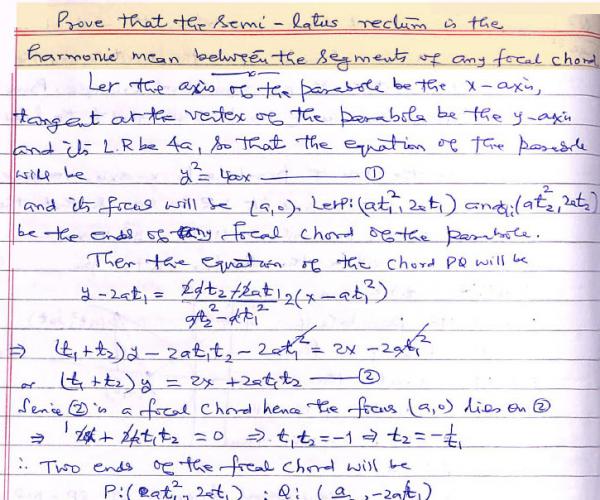 Prove that the semi-latus rectum is the
harmonic mean between the segments of any focal chord
Let the axis of the parabola be the x-axis,
tangent at the vertex of the parabola be the y-axis
and its L.R be 4a, so that the equation of the parabola
will be y² = 4ax — ①
and its focus will be (a,0). Let P:(at₁², 2at₁) and Q:(at₂², 2at₂)
be the ends of any focal chord of the parabola.
Then the equation of the chord PQ will be
y - 2at₁ = (2at₂ - 2at₁)/(at₂² - at₁²) (x - at₁²)
⇒ (t₁+t₂)y - 2at₁t₂ - 2at₁² = 2x - 2at₁²
or (t₁+t₂)y = 2x + 2at₁t₂ — ②
Since ② is a focal chord hence the focus (a,0) lies on ②
⇒ 2a + 2at₁t₂ = 0 ⇒ t₁t₂ = -1 ⇒ t₂ = -1/t₁
∴ Two ends of the focal chord will be
P:(at₁², 2at₁) ; Q: (a